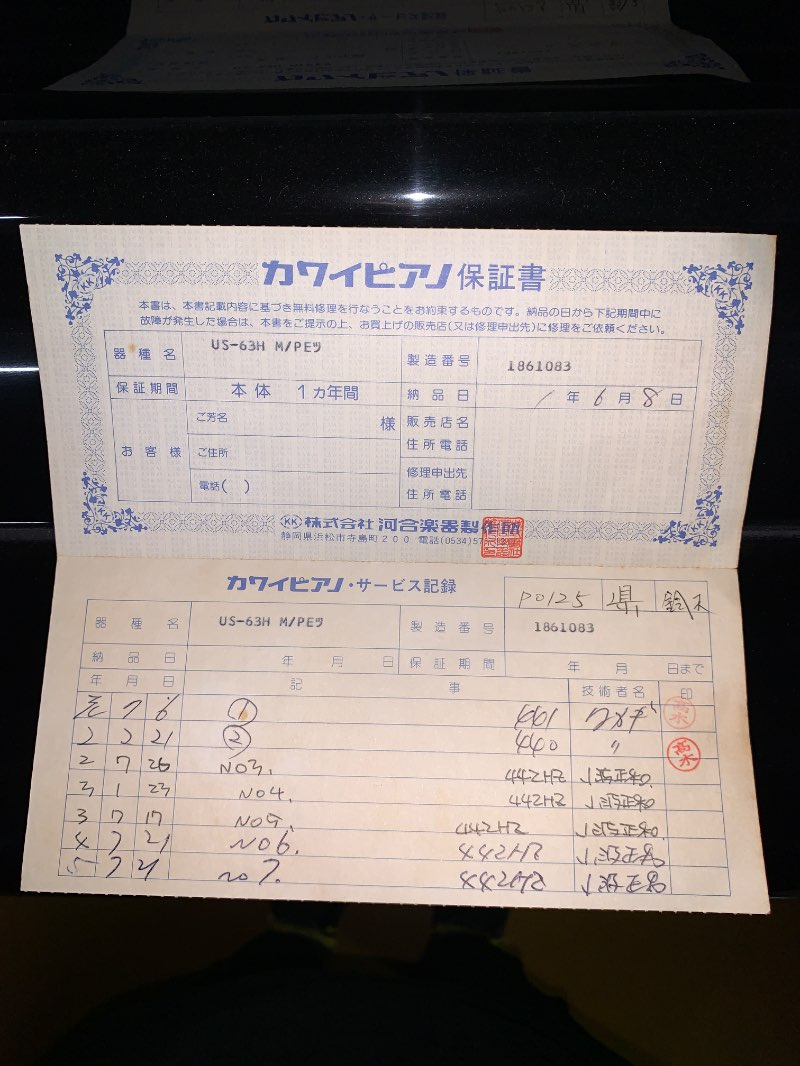 カワイピアノ 保証書
本書は、本書記載内容に基づき無料修理を行なうことをお約束するものです。納品の日から下記期間中に
故障が発生した場合は、本書をご提示の上、お買上げの販売店(又は修理申出先)に修理をご依頼ください。
器種名 US-63H M/PEツ 製造番号 1861083
保証期間 本体 1ヵ年間 納品日 1年6月8日
お客様 ご芳名 様 販売店名
住所電話
ご住所
修理申出先
電話( ) 住所電話
KK 株式会社 河合楽器製作所
静岡県浜松市寺島町200 電話(0534)57
カワイピアノ・サービス記録 P0125 県 鈴木
器種名 US-63H M/PEツ 製造番号 1861083
納品日 年 月 日 保証期間 年 月 日まで
年 月 日 記事 技術者名 印
元 7 6 ① 441
2 2 21 ② 440 〃 高木
2 7 26 NO3. 442HZ
3 1 23 NO4. 442HZ
3 7 17 NO5. 442HZ
4 7 21 NO6. 442HZ
5 7 21 NO7. 442HZ